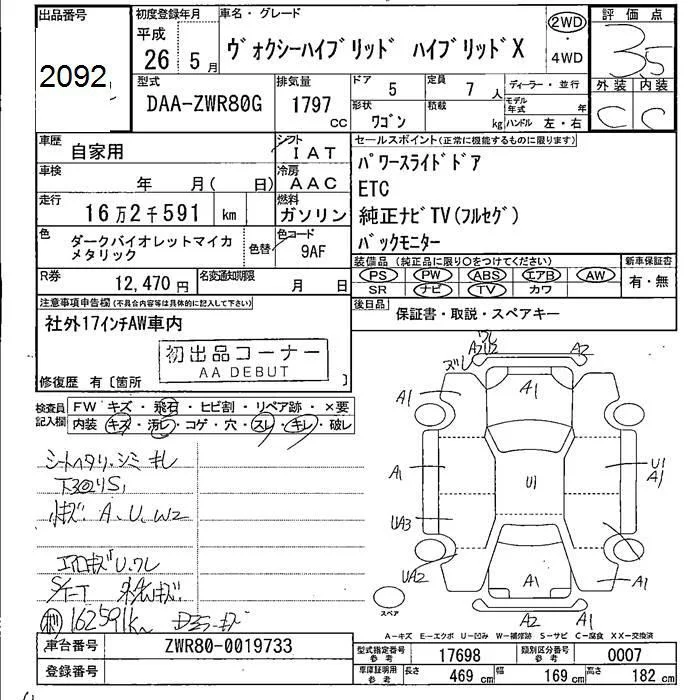 出品番号 初度登録年月 車名・グレード 評価点
2092 平成 26年 5月 ヴォクシーハイブリッド ハイブリッドX 2WD ・ 4WD 3.5
型式 排気量 ドア 5 定員 7人 ディーラー・並行 外装 内装
DAA-ZWR80G 1797 CC 形状 ワゴン 積載 kg モデル年式 年 ハンドル 左・右 C C
車歴 自家用 シフト IAT セールスポイント(正常に機能するものに限ります)
車検 年 月( 日) 冷房 AAC パワースライドドア
ETC
走行 16万2千591 km 燃料 ガソリン 純正ナビTV(フルセグ)
色 ダークバイオレットマイカメタリック 色替 色コード 9AF バックモニター
装備品(純正品に限り○をつけてください) 新車保証書
PS PW ABS エアB AW 有・無
SR ナビ TV カワ
R券 12,470円 名変通知期限 月 日
後日品 保証書・取説・スペアキー
注意事項申告欄(不具合内容等は具体的に記入して下さい)
社外17インチAW車内
初出品コーナー
AA DEBUT
修復歴 有〔箇所 〕
検査員記入欄 FW キズ・飛石・ヒビ割・リペア跡・×要
内装 キズ・汚レ・コゲ・穴・スレ・キレ・破レ
シートヘタリ・シミ キレ
下回りS1
小キズ A、U、W2
エアロキズ U.ワレ
162591km
ズレ ワレ A2 A1 A1
A1 A1 U1 U1 A1
UA3
UA2 A1 A1
A2 A1
スペア
A-キズ E-エクボ U-凹み W-補修跡 S-サビ C-腐食 XX-交換済
車台番号 ZWR80-0019733 型式指定番号 参考 17698 類別区分番号 参考 0007
登録番号 車庫証明用 参考 長さ 469 cm 幅 169 cm 高さ 182 cm